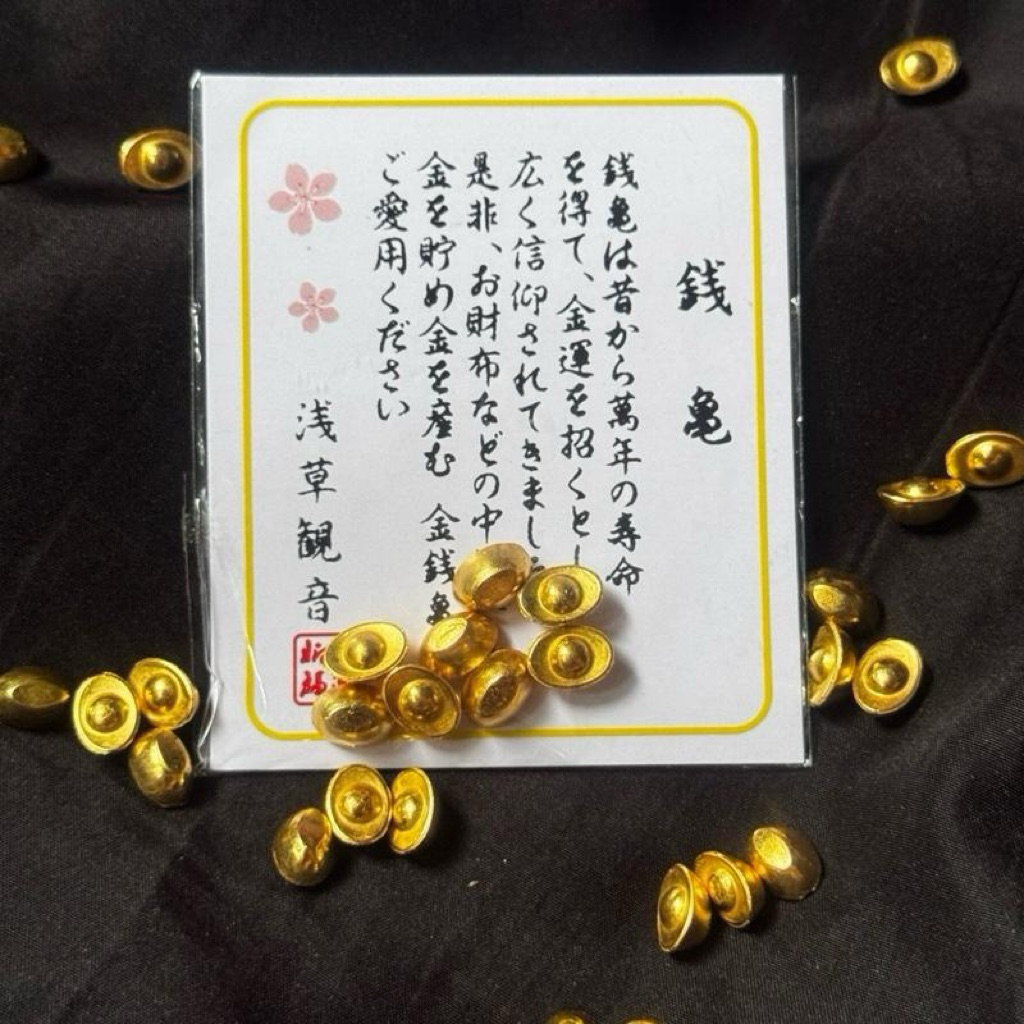 銭亀
銭亀は昔から萬年の寿命
を得て、金運を招くとし
広く信仰されてきまし
是非、お財布などの中
金を貯め金を産む 金銭亀
ご愛用ください
浅草観音